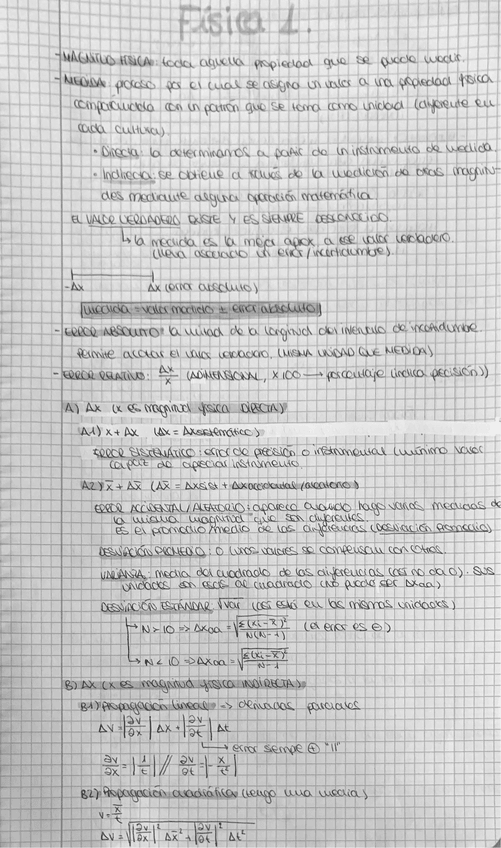 Física 1.
- MAGNITUD FÍSICA: toda aquella propiedad que se puede medir.
- MEDIDA: proceso por el cual se asigna un valor a una propiedad física
comparándola con un patrón que se toma como unidad (diferente en
cada cultura).
· Directa: la determinamos a partir de un instrumento de medida.
· Indirecta: se obtiene a través de la medición de otras magnitu-
des mediante alguna operación matemática.
EL VALOR VERDADERO EXISTE Y ES SIEMPRE DESCONOCIDO.
↳ la medida es la mejor aprox a ese valor verdadero.
(lleva asociado un error/incertidumbre).
-Δx Δx (error absoluto)
medida = valor numérico ± error absoluto
- ERROR ABSOLUTO: la mitad de la longitud del intervalo de incertidumbre.
Permite acotar el valor verdadero. (MISMA UNIDAD QUE MEDIDA)
- ERROR RELATIVO: Δx/x (ADIMENSIONAL, x100 → porcentaje (indica precisión))
A) Δx (x es magnitud física DIRECTA)
A1) x + Δx (Δx = Δxsistemático)
ERROR SISTEMÁTICO: error de precisión o instrumental (mínimo valor
capaz de apreciar instrumento.
A2) x̄ + Δx̄ (Δx̄ = Δxsist + Δxaccidental/aleatorio)
ERROR ACCIDENTAL/ALEATORIO: aparece cuando hago varias medidas de
la misma magnitud que son diferentes.
Es el promedio/medio de las diferencias (desviación promedio)
DESVIACIÓN PROMEDIO: 0 unos valores se compensan con otros.
VARIANZA: media del cuadrado de las diferencias (así no da 0). Sus
unidades son al cuadrado (no puede ser Δxaa)
DESVIACIÓN ESTÁNDAR √var (así está en las mismas unidades)
→ N > 10 => Δxaa = √(Σ(xi - x̄)²/N(N-1)) (el error es ⊖)
→ N < 10 => Δxaa = √(Σ(xi - x̄)²/N-1)
B) Δx (x es magnitud física INDIRECTA)
B1) Propagación lineal => derivadas parciales
ΔV = |∂V/∂x| Δx + |∂V/∂t| Δt
↳ error siempre ⊕ "||"
∂V/∂x = |1/t| // ∂V/∂t = |-x/t²|
B2) Propagación cuadrática (tengo una media)
V = x̄/t
ΔV = √(|∂V/∂x|² Δx̄² + |∂V/∂t|² Δt²)